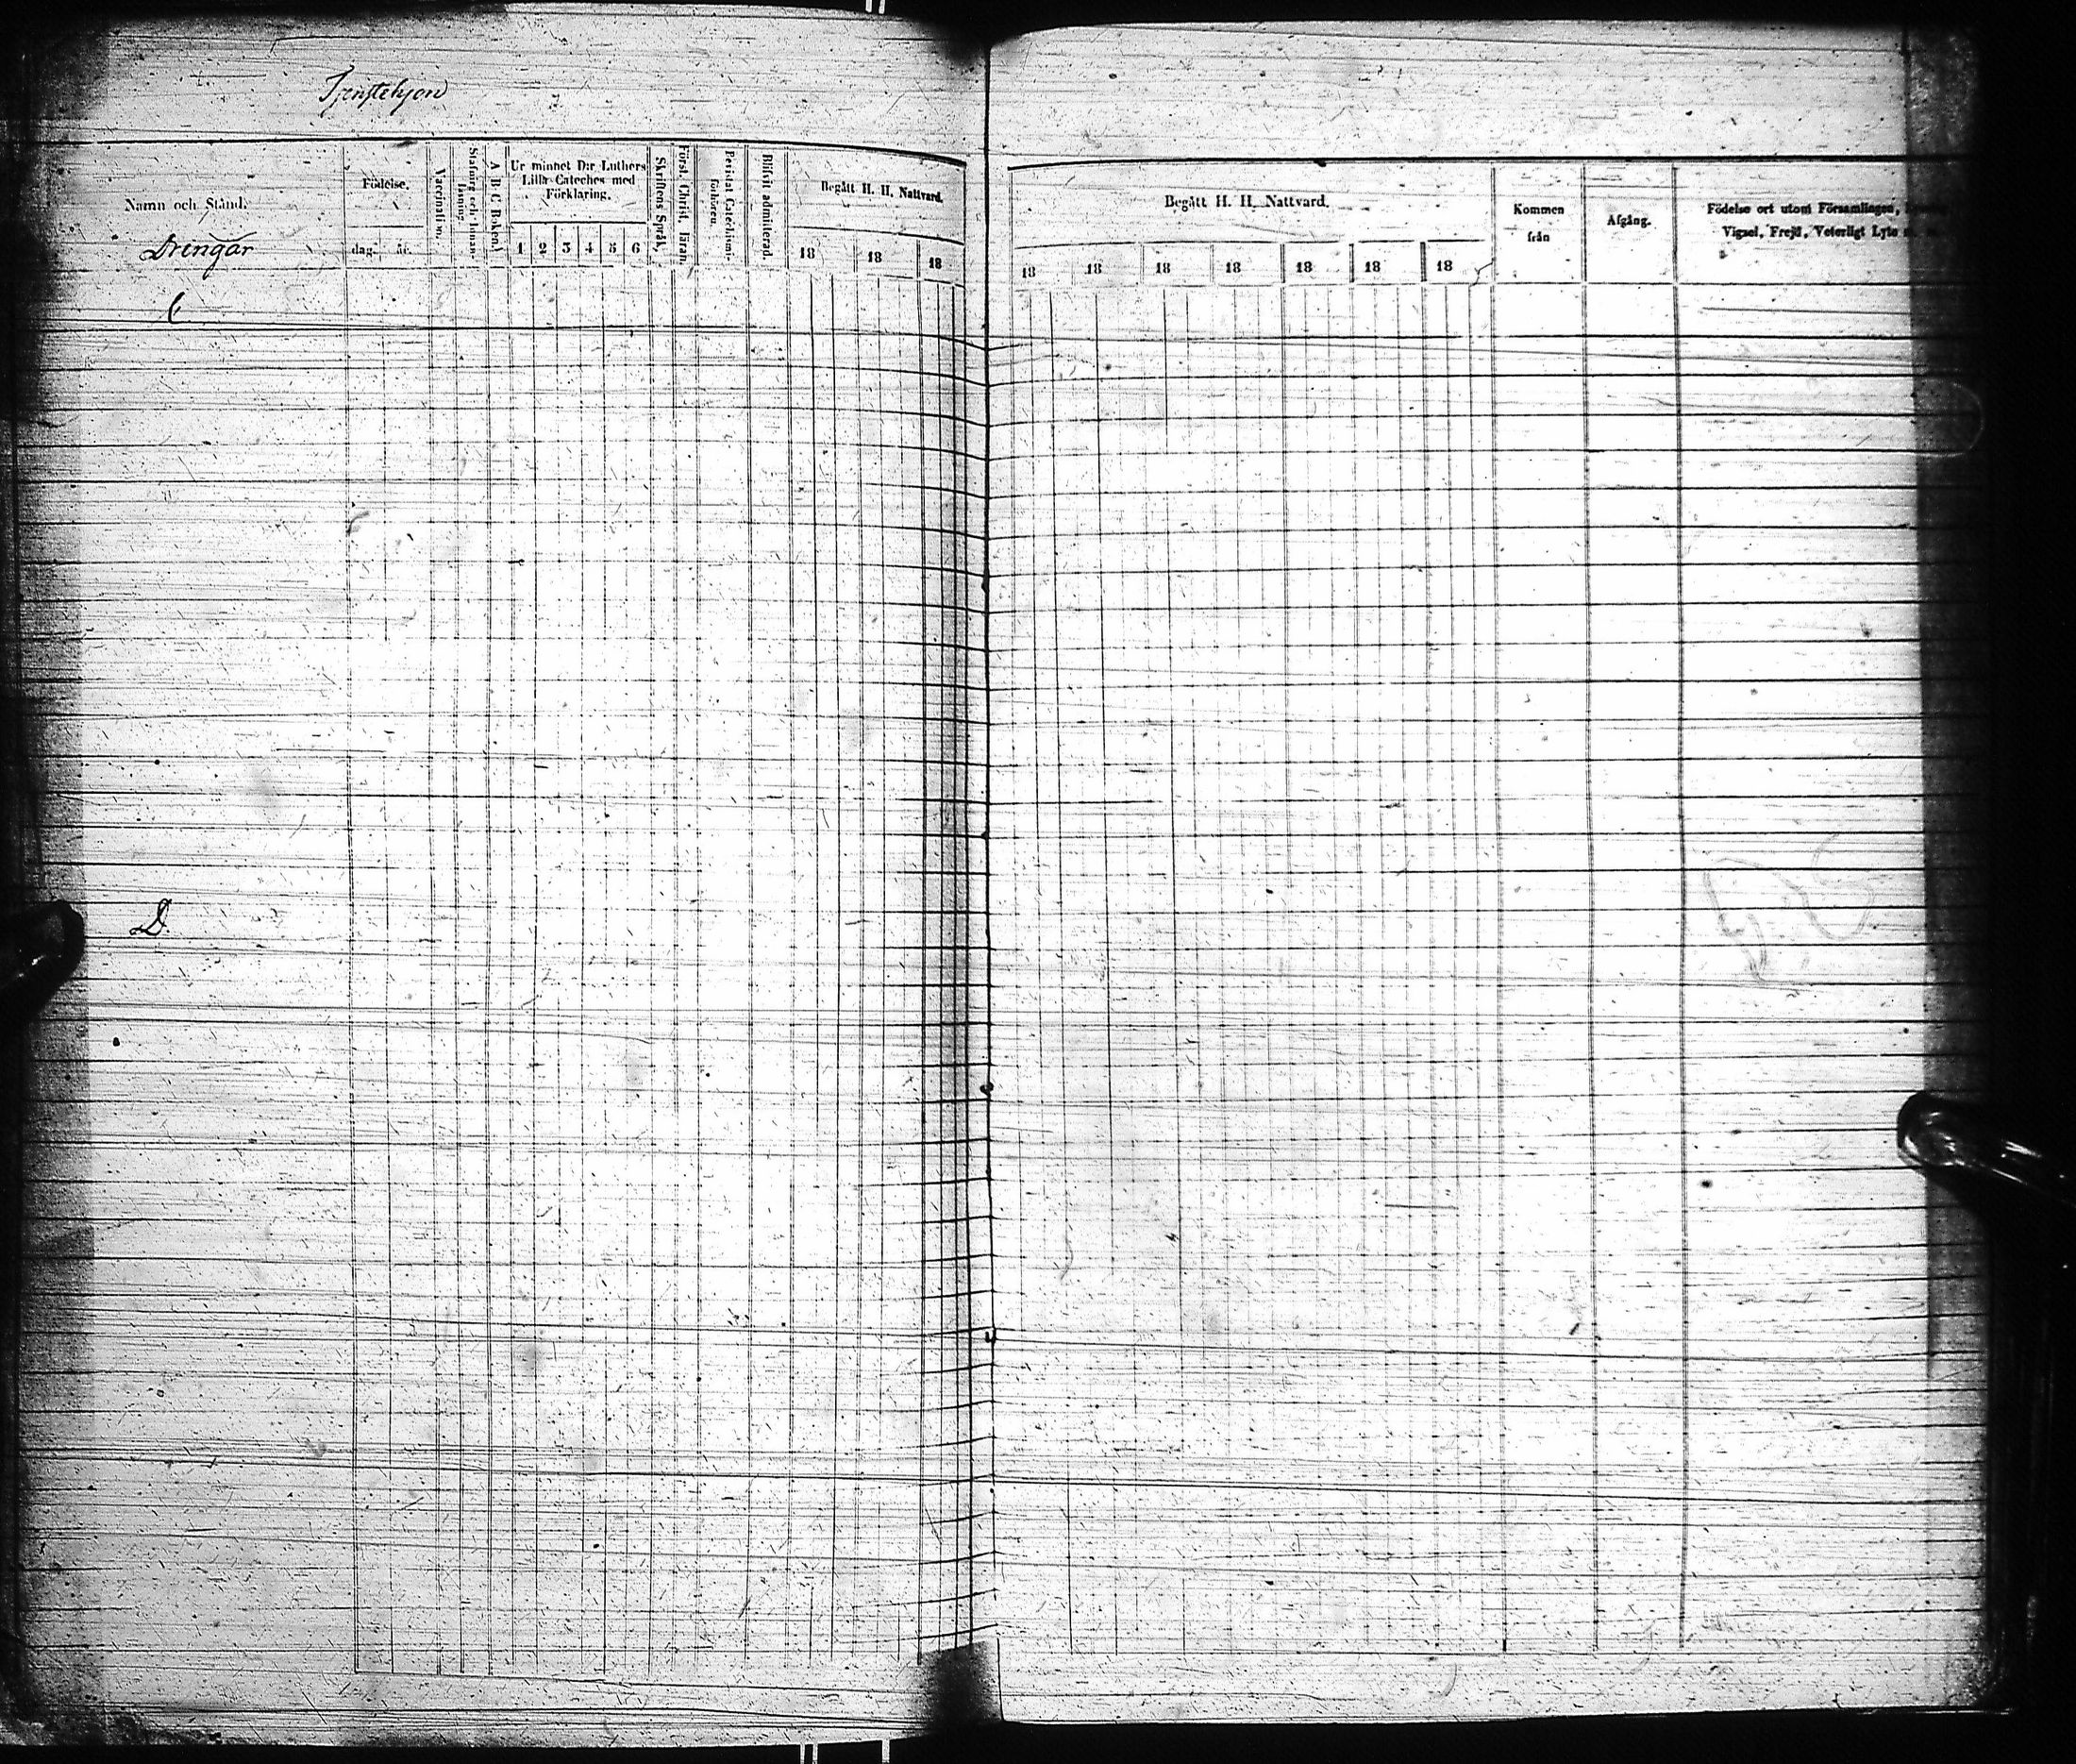 Tjenstehjon
Namn och Stånd.
Drengar
Födelse.
dag. år.
Vaccination.
Stafning och Innan-läsning.
A B C Boken.
Ur minnet D:r Luthers
Lilla Cateches med
Förklaring.
1 2 3 4 5 6
Skriftens Språk.
Först. Christ. läran.
Bevistat Catechismi-förhören.
Blifvit admitterad.
Begått H. H. Nattvard.
18 18 18
C
D.
Begått H. H. Nattvard.
18 18 18 18 18 18 18
Kommen
från
Afgång.
Födelse ort utom Församlingen,
Vigsel, Frejd, Veterligt Lyte